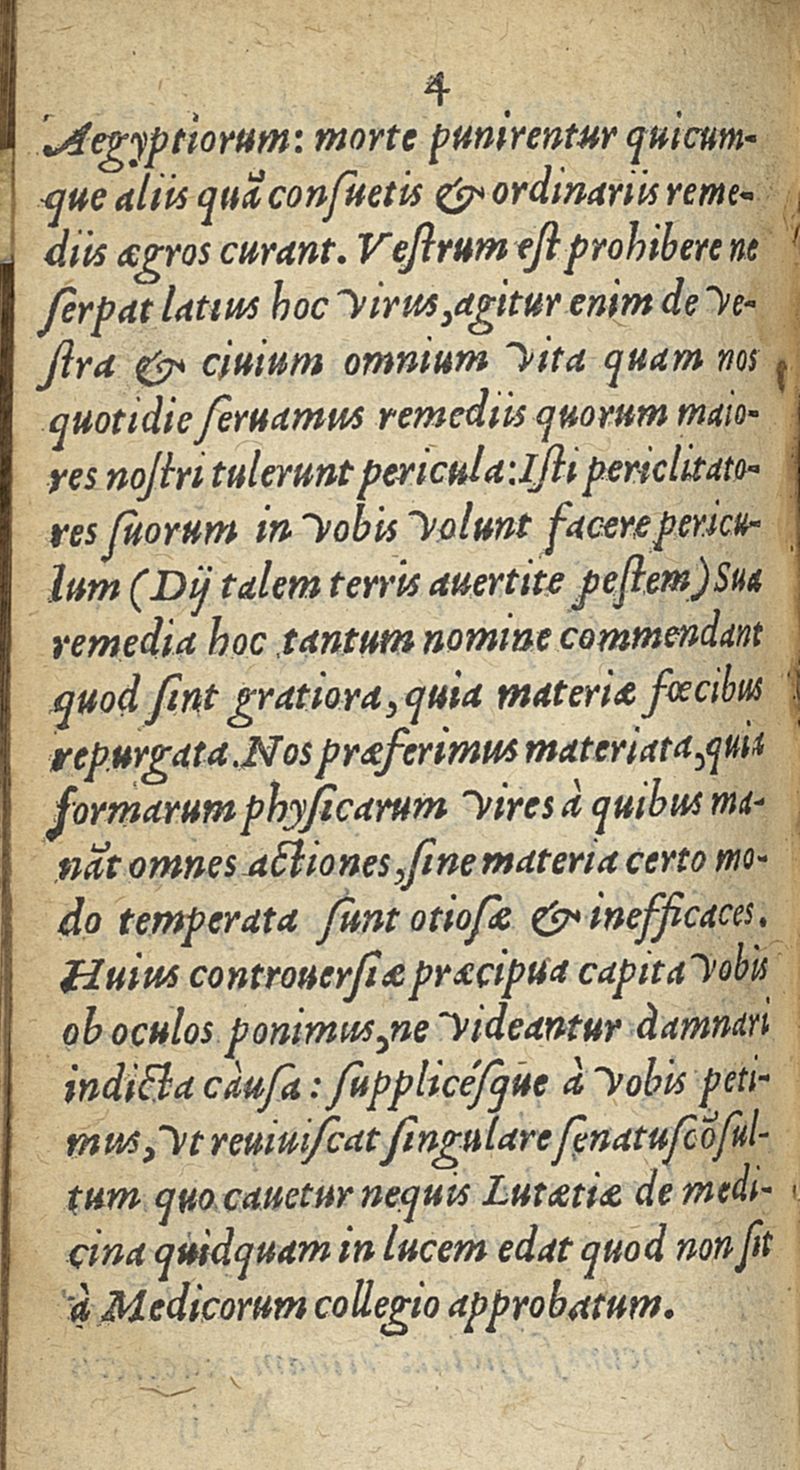 4
Aegyptiorum: morte punirentur quicum-
que aliis quã conſuetis & ordinariis reme-
diis ægros curant. Veſtrum eſt prohibere ne
ſerpat latius hoc virus, agitur enim de ve-
ſtra & ciuium omnium vita quam nos
quotidie ſeruamus remediis quorum maio-
res noſtri tulerunt pericula: Iſti periclitato-
res ſuorum in vobis volunt facere pericu-
lum (Dij talem terris auertite peſtem) Sua
remedia hoc tantum nomine commendant
quod ſint gratiora, quia materiæ fœcibus
repurgata. Nos præferimus materiata, quia
formarum phyſicarum vires à quibus ma-
nãt omnes actiones, ſine materia certo mo-
do temperata ſunt otioſæ & inefficaces.
Huius controuerſiæ præcipua capita vobis
ob oculos ponimus, ne videantur damnari
indicta cauſa: ſupplicéſque à vobis peti-
mus, vt reuiuiſcat ſingulare ſenatuſcõſul-
tum quo cauetur nequis Lutætiæ de medi-
cina quidquam in lucem edat quod non ſit
à Medicorum collegio approbatum.